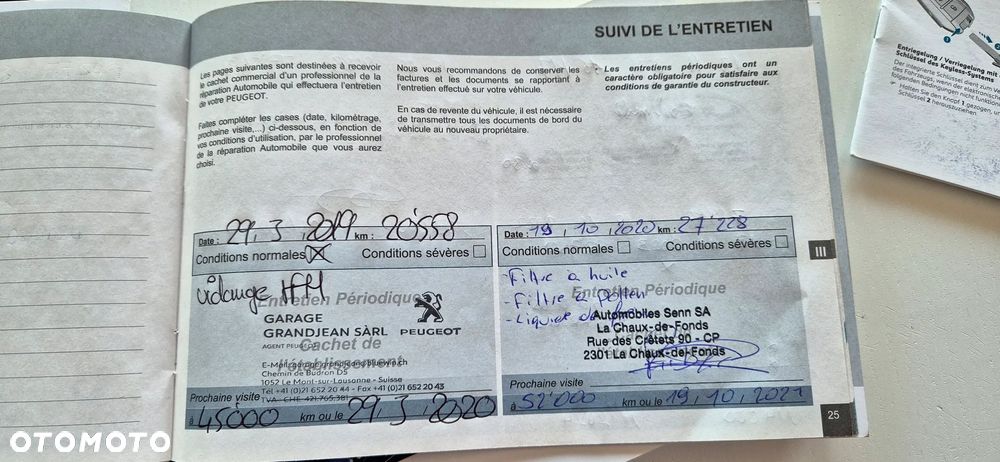 SUIVI DE L'ENTRETIEN
Les pages suivantes sont destinées à recevoir
le cachet commercial d'un professionnel de la
réparation Automobile qui effectuera l'entretien
de votre PEUGEOT.
Faites compléter les cases (date, kilométrage,
prochaine visite,...) ci-dessous, en fonction de
vos conditions d'utilisation, par le professionnel
de la réparation Automobile que vous aurez
choisi.
Nous vous recommandons de conserver les
factures et les documents se rapportant à
l'entretien effectué sur votre véhicule.
En cas de revente du véhicule, il est nécessaire
de transmettre tous les documents de bord du
véhicule au nouveau propriétaire.
Les entretiens périodiques ont un
caractère obligatoire pour satisfaire aux
conditions de garantie du constructeur.
Date : 29. 3. 2019 km : 20'558
Conditions normales Conditions sévères
vidange
Entretien Périodique
GARAGE
GRANDJEAN SÀRL
PEUGEOT
AGENT PEUGEOT
Cachet de
l'établissement
Chemin de Budron D5
1052 Le Mont-sur-Lausanne - Suisse
Tél +41 (0)21 652 20 44 - Fax +41 (0)21 652 20 43
TVA CHE 421.765.381
Prochaine visite
à 45'000 km ou le 29. 3. 2020
Date : 19, 10, 2020 km : 27'228
Conditions normales Conditions sévères
- Filtre à huile
- Filtre à pollen
- Liquide de
Entretien Périodique
Automobiles Senn SA
La Chaux-de-Fonds
Rue des Crêtets 90 - CP
2301 La Chaux-de-Fonds
Prochaine visite
à 52'000 km ou le 19, 10, 2021
III
25
Entriegelung / Verriegelung mit
Schlüssel des Keyless-Systems
Der integrierte Schlüssel dient zum
des Fahrzeugs, wenn der elektronische
folgenden Bedingungen nicht funktion
Halten Sie den Knopf 1 gezogen, um
Schlüssel 2 herauszuziehen
OTOMOTO